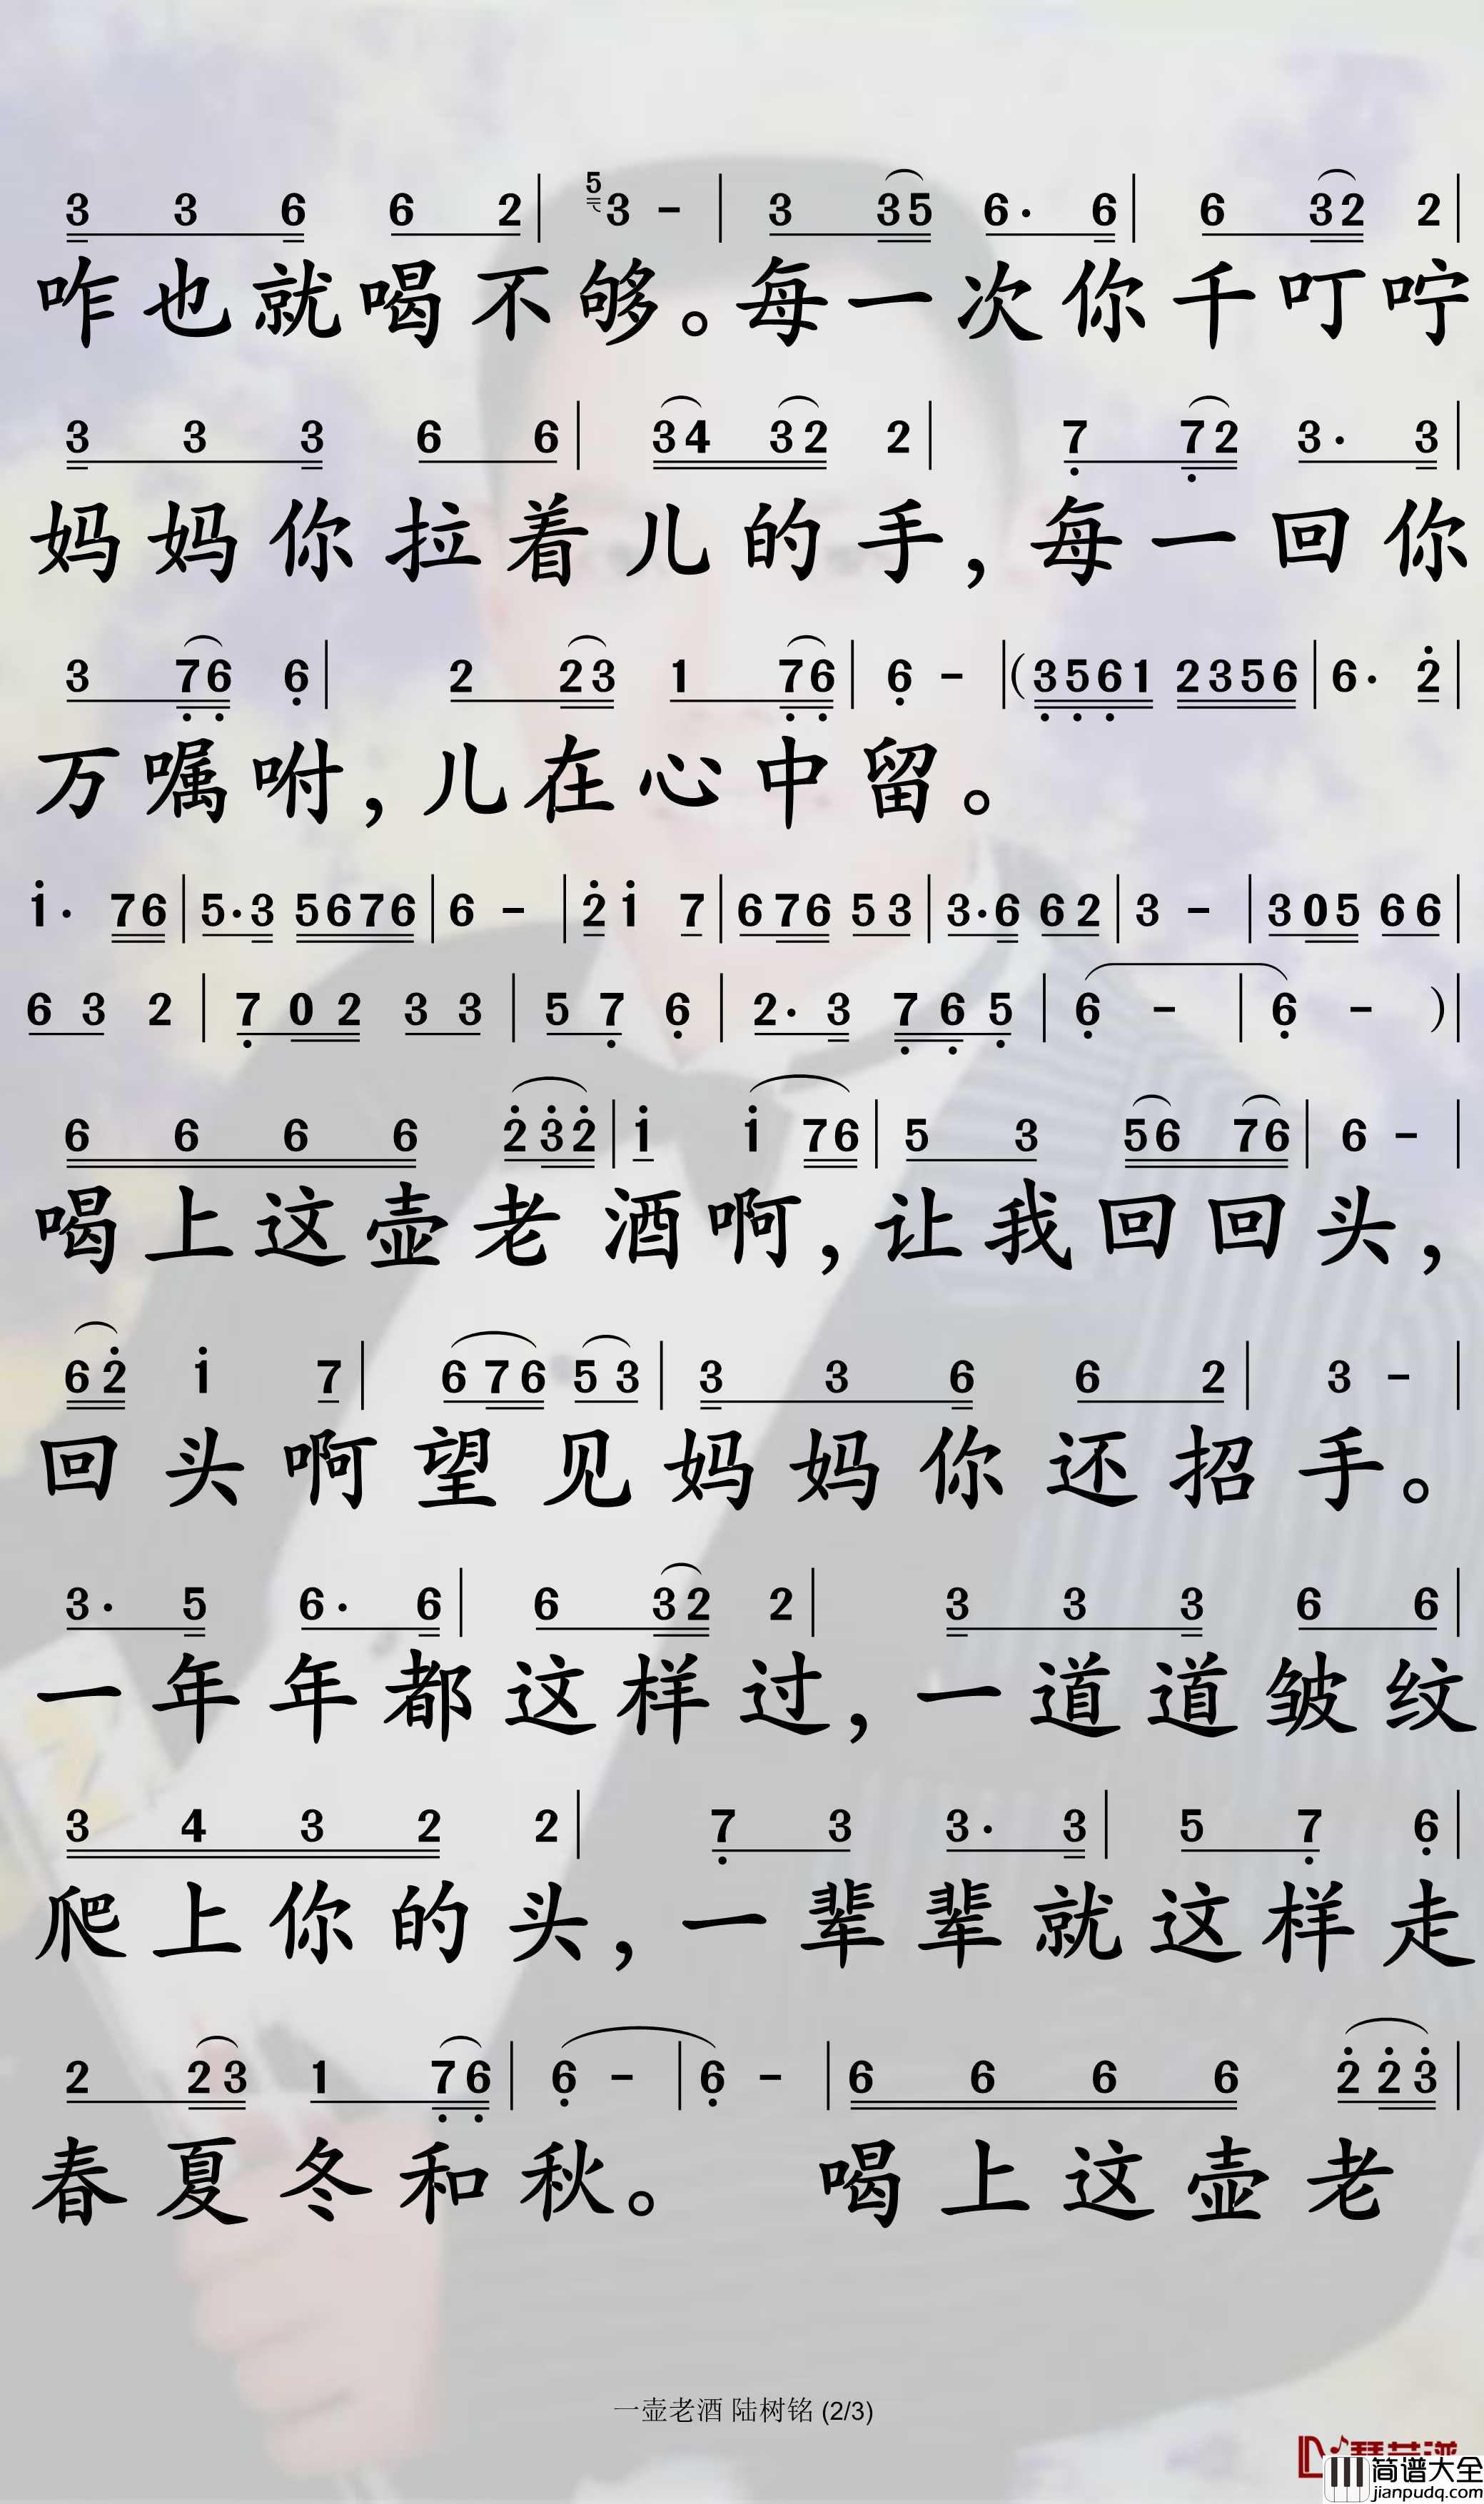 5
3 3 6 6 2 | 3 - | 3 35 6· 6 | 6 32 2 |
咋也就喝不够。每一次你千叮咛
3 3 3 6 6 | 34 32 2 | 7 72 3· 3 |
妈妈你拉着儿的手,每一回你
3 76 6 | 2 23 1 76 | 6 - | (3561 2356 | 6· 2 |
万嘱咐,儿在心中留。
1· 76 | 5·3 5676 | 6 - | 21 7 | 676 53 | 3·6 62 | 3 - | 305 66 |
6 3 2 | 7 0 2 3 3 | 5 7 6 | 2· 3 7 6 5 | 6 - | 6 - ) |
6 6 6 6 232 | 1 1 76 | 5 3 56 76 | 6 - |
喝上这壶老酒啊,让我回回头,
62 1 7 | 676 53 | 3 3 6 6 2 | 3 - |
回头啊望见妈妈你还招手。
3· 5 6· 6 | 6 32 2 | 3 3 3 6 6 |
一年年都这样过,一道道皱纹
3 4 3 2 2 | 7 3 3· 3 | 5 7 6 |
爬上你的头,一辈辈就这样走
2 23 1 76 | 6 - | 6 - | 6 6 6 6 223 |
春夏冬和秋。 喝上这壶老
一壶老酒 陆树铭 (2/3)
简谱大全
jianpudq.com